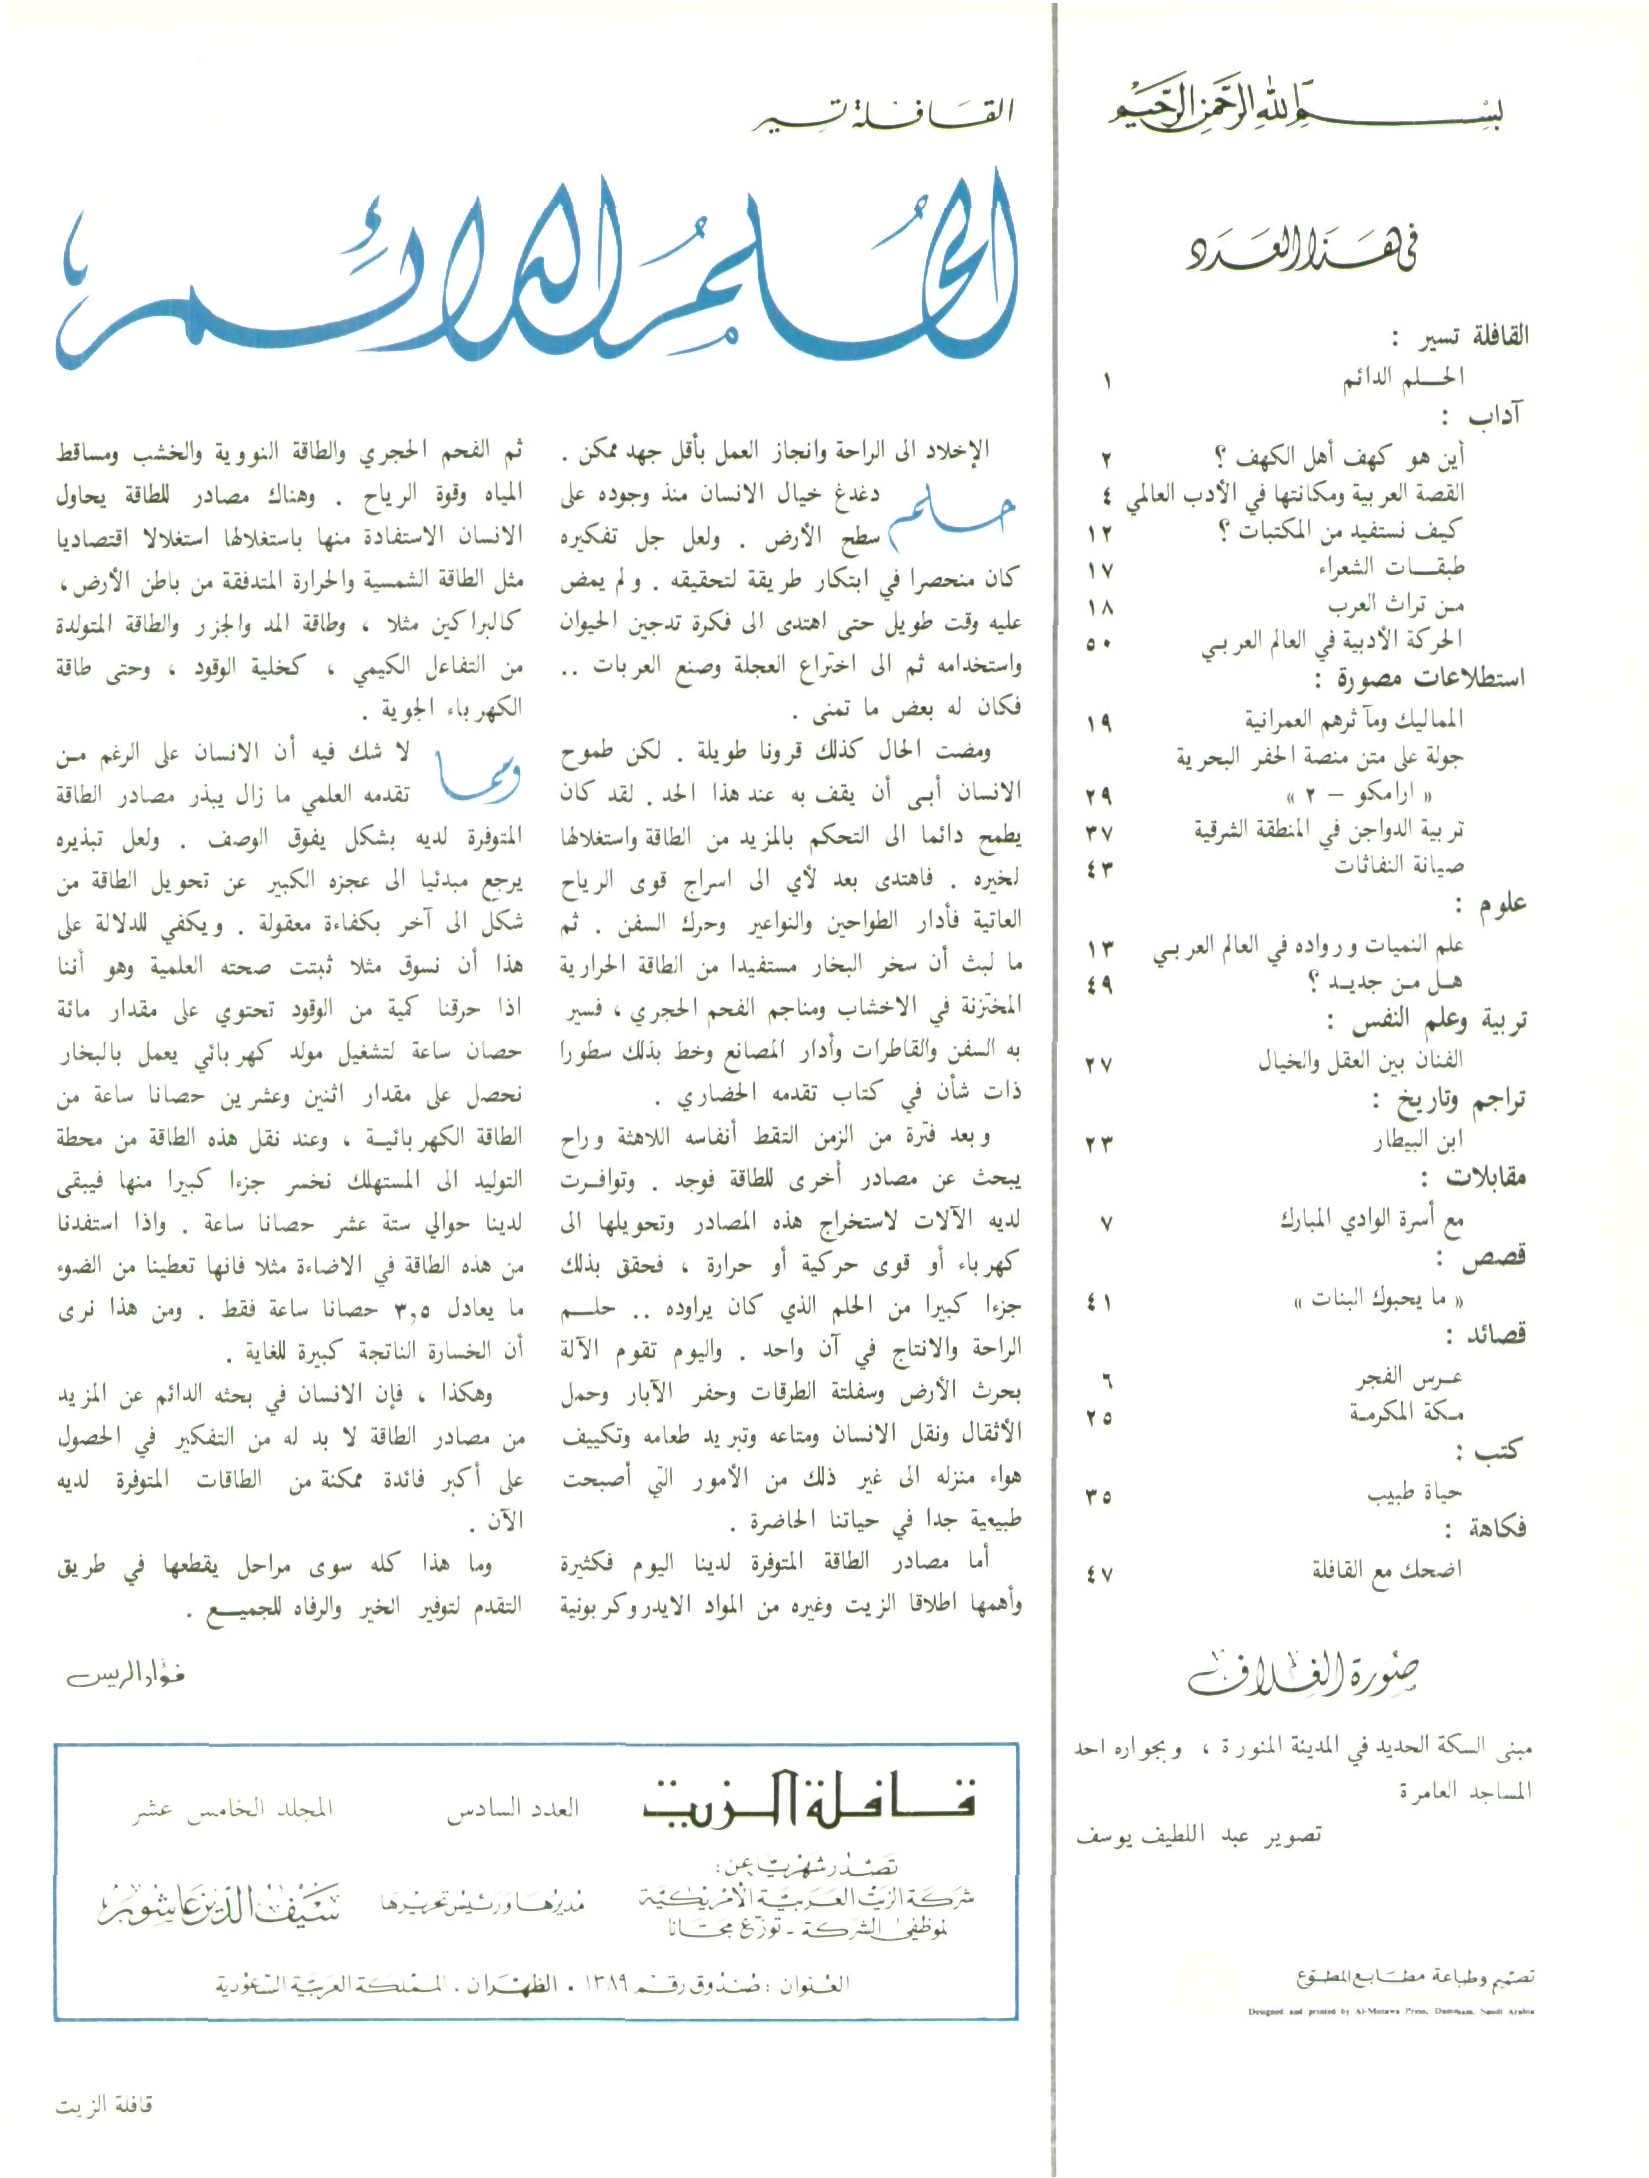 بسم الله الرحمن الرحيم
في هذا العدد
القافلة تسير :
الحلم الدائم ١
آداب :
أين هو كهف أهل الكهف ؟ ٢
القصة العربية ومكانتها في الأدب العالمي ٤
كيف نستفيد من المكتبات ؟ ١٢
طبقات الشعراء ١٧
من تراث العرب ١٨
الحركة الأدبية في العالم العربي ٥٠
استطلاعات مصورة :
المماليك ومآثرهم العمرانية ١٩
جولة على متن منصة الحفر البحرية
« ارامكو – ٢ » ٢٩
تربية الدواجن في المنطقة الشرقية ٣٧
صيانة النفاثات ٤٣
علوم :
علم النميات ورواده في العالم العربي ١٣
هل من جديد ؟ ٤٩
تربية وعلم النفس :
الفنان بين العقل والخيال ٢٧
تراجم وتاريخ :
ابن البيطار ٢٣
مقابلات :
مع أسرة الوادي المبارك ٧
قصص :
« ما يحبوك البنات » ٤١
قصائد :
عرس الفجر ٦
مكة المكرمة ٢٥
كتب :
حياة طبيب ٣٥
فكاهة :
اضحك مع القافلة ٤٧
صورة الغلاف
مبنى السكة الحديد في المدينة المنورة ، وبجواره احد
المساجد العامرة
تصوير عبد اللطيف يوسف
تصميم وطباعة مطابع المطوع
Designed and printed by Al-Mutawa Press, Dammam, Saudi Arabia
القافلة تسير
الحُلمُ الدائم
الإخلاد الى الراحة وانجاز العمل بأقل جهد ممكن .
حلم دغدغ خيال الانسان منذ وجوده على
سطح الأرض . ولعل جل تفكيره
كان منحصرا في ابتكار طريقة لتحقيقه . ولم يمض
عليه وقت طويل حتى اهتدى الى فكرة تدجين الحيوان
واستخدامه ثم الى اختراع العجلة وصنع العربات ..
فكان له بعض ما تمنى .
ومضت الحال كذلك قرونا طويلة . لكن طموح
الانسان أبى أن يقف به عند هذا الحد . لقد كان
يطمح دائما الى التحكم بالمزيد من الطاقة واستغلالها
لخيره . فاهتدى بعد لأي الى اسراج قوى الرياح
العاتية فأدار الطواحين والنواعير وحرك السفن . ثم
ما لبث أن سخر البخار مستفيدا من الطاقة الحرارية
المختزنة في الاخشاب ومناجم الفحم الحجري ، فسير
به السفن والقاطرات وأدار المصانع وخط بذلك سطورا
ذات شأن في كتاب تقدمه الحضاري .
وبعد فترة من الزمن التقط أنفاسه اللاهثة وراح
يبحث عن مصادر أخرى للطاقة فوجد . وتوافرت
لديه الآلات لاستخراج هذه المصادر وتحويلها الى
كهرباء أو قوى حركية أو حرارة ، فحقق بذلك
جزءا كبيرا من الحلم الذي كان يراوده .. حلم
الراحة والانتاج في آن واحد . واليوم تقوم الآلة
بحرث الأرض وسفلتة الطرقات وحفر الآبار وحمل
الأثقال ونقل الانسان ومتاعه وتبريد طعامه وتكييف
هواء منزله الى غير ذلك من الأمور التي أصبحت
طبيعية جدا في حياتنا الحاضرة .
أما مصادر الطاقة المتوفرة لدينا اليوم فكثيرة
وأهمها اطلاقا الزيت وغيره من المواد الايدروكربونية
ثم الفحم الحجري والطاقة النووية والخشب ومساقط
المياه وقوة الرياح . وهناك مصادر للطاقة يحاول
الانسان الاستفادة منها باستغلالها استغلالا اقتصاديا
مثل الطاقة الشمسية والحرارة المتدفقة من باطن الأرض ،
كالبراكين مثلا ، وطاقة المد والجزر والطاقة المتولدة
من التفاعل الكيمي ، كخلية الوقود ، وحتى طاقة
الكهرباء الجوية .
ومما لا شك فيه أن الانسان على الرغم من
تقدمه العلمي ما زال يبذر مصادر الطاقة
المتوفرة لديه بشكل يفوق الوصف . ولعل تبذيره
يرجع مبدئيا الى عجزه الكبير عن تحويل الطاقة من
شكل الى آخر بكفاءة معقولة . ويكفي للدلالة على
هذا أن نسوق مثلا ثبتت صحته العلمية وهو أننا
اذا حرقنا كمية من الوقود تحتوي على مقدار مائة
حصان ساعة لتشغيل مولد كهربائي يعمل بالبخار
نحصل على مقدار اثنين وعشرين حصانا ساعة من
الطاقة الكهربائية ، وعند نقل هذه الطاقة من محطة
التوليد الى المستهلك نخسر جزءا كبيرا منها فيبقى
لدينا حوالي ستة عشر حصانا ساعة . واذا استفدنا
من هذه الطاقة في الاضاءة مثلا فانها تعطينا من الضوء
ما يعادل ٣,٥ حصانا ساعة فقط . ومن هذا نرى
أن الخسارة الناتجة كبيرة للغاية .
وهكذا ، فإن الانسان في بحثه الدائم عن المزيد
من مصادر الطاقة لا بد له من التفكير في الحصول
على أكبر فائدة ممكنة من الطاقات المتوفرة لديه
الآن .
وما هذا كله سوى مراحل يقطعها في طريق
التقدم لتوفير الخير والرفاه للجميع .
فؤاد الريس
قافلة الزيت العدد السادس المجلد الخامس عشر
تصدر شهريا عن :
شركة الزيت العربية الأمريكية
لموظفي الشركة - توزع مجانا
مديرها ورئيس تحريرها سيف الدين عاشور
العنوان : صندوق رقم ١٣٨٩ . الظهران . المملكة العربية السعودية
قافلة الزيت